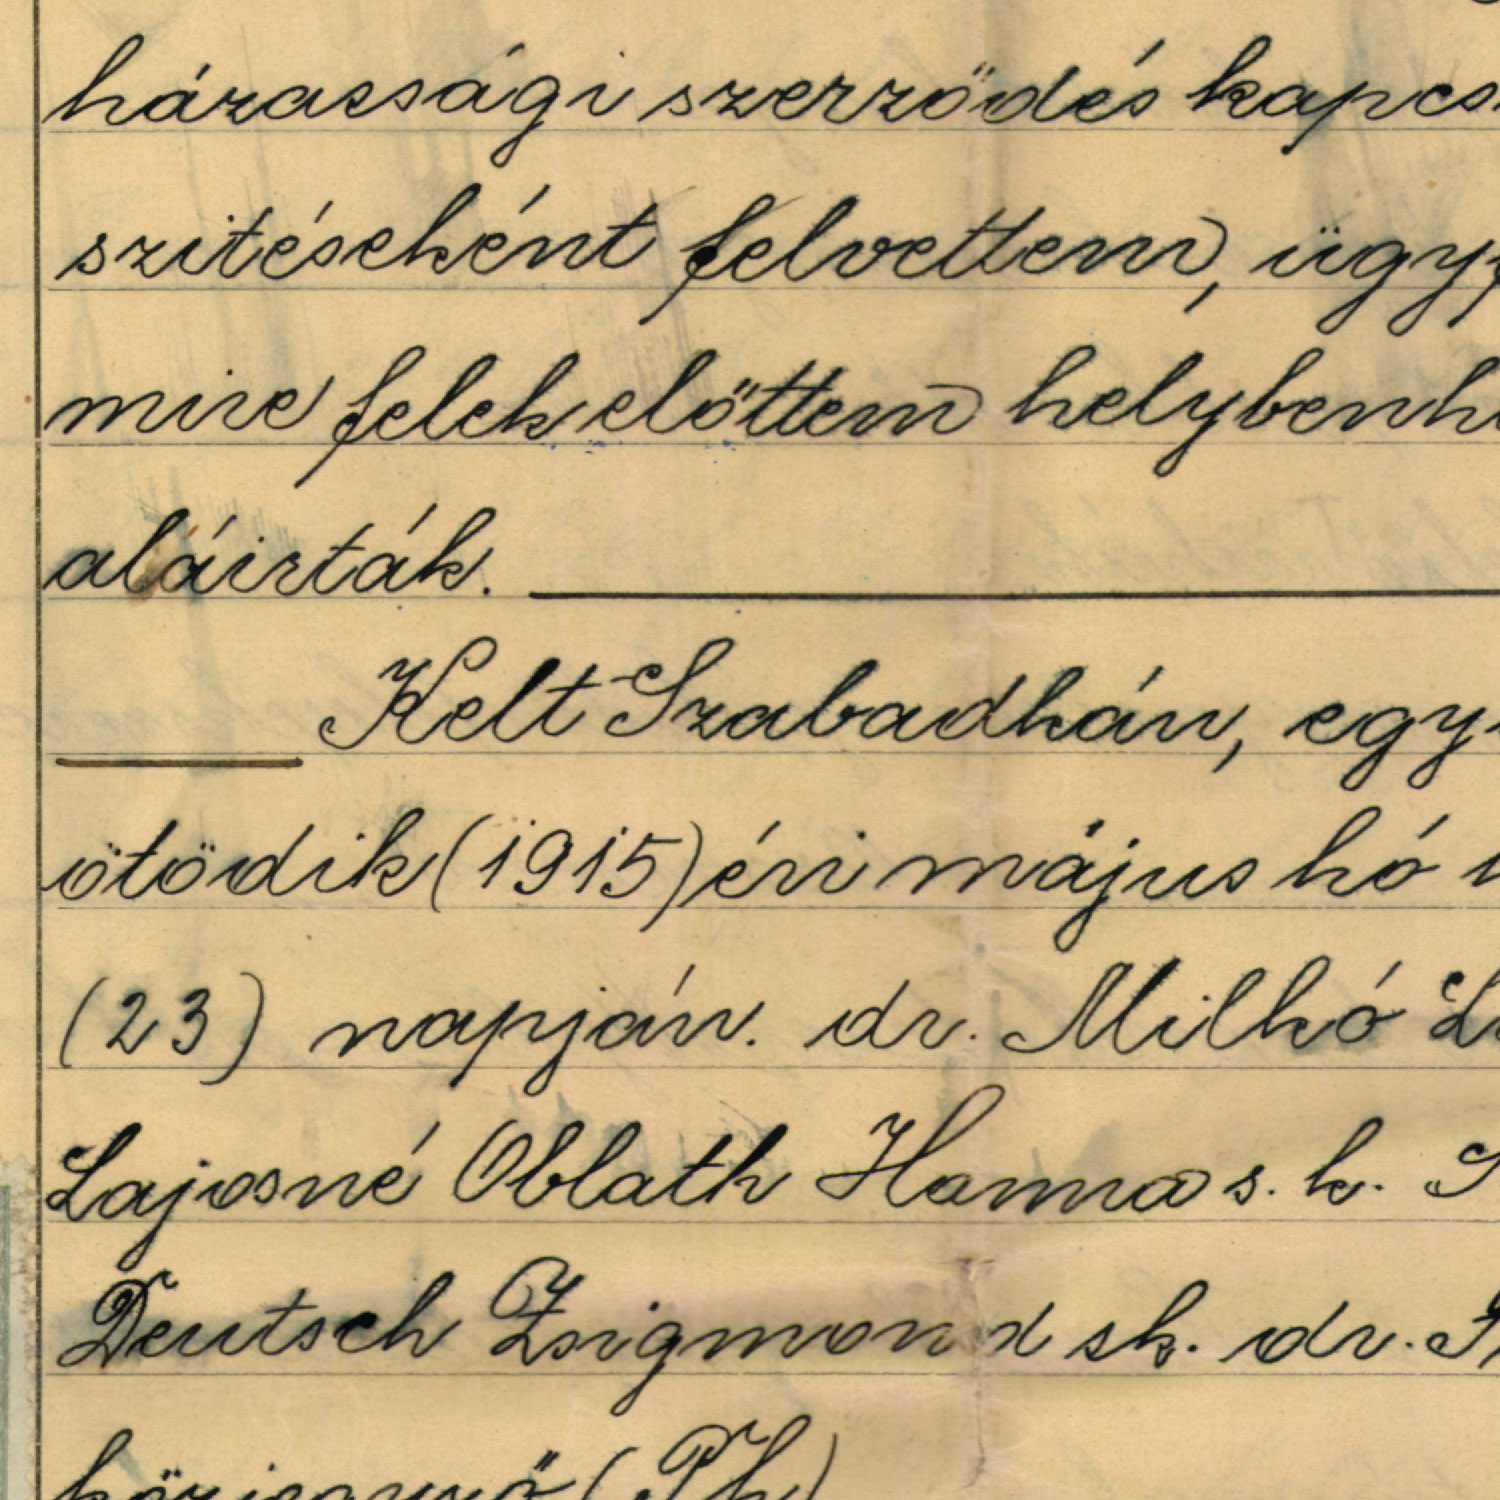 házassági szerződés kapcs
szitéseként felvettem, ügy
mire felek előttem helybenh
aláirták.
Kelt Szabadkán, egy
ötödik (1915) évi május hó
(23) napján. dr. Milkó L
Lajosné Oblath Hanna s. k. S
Deutsch Zsigmond sk. dr.
közjegyző (Ph)